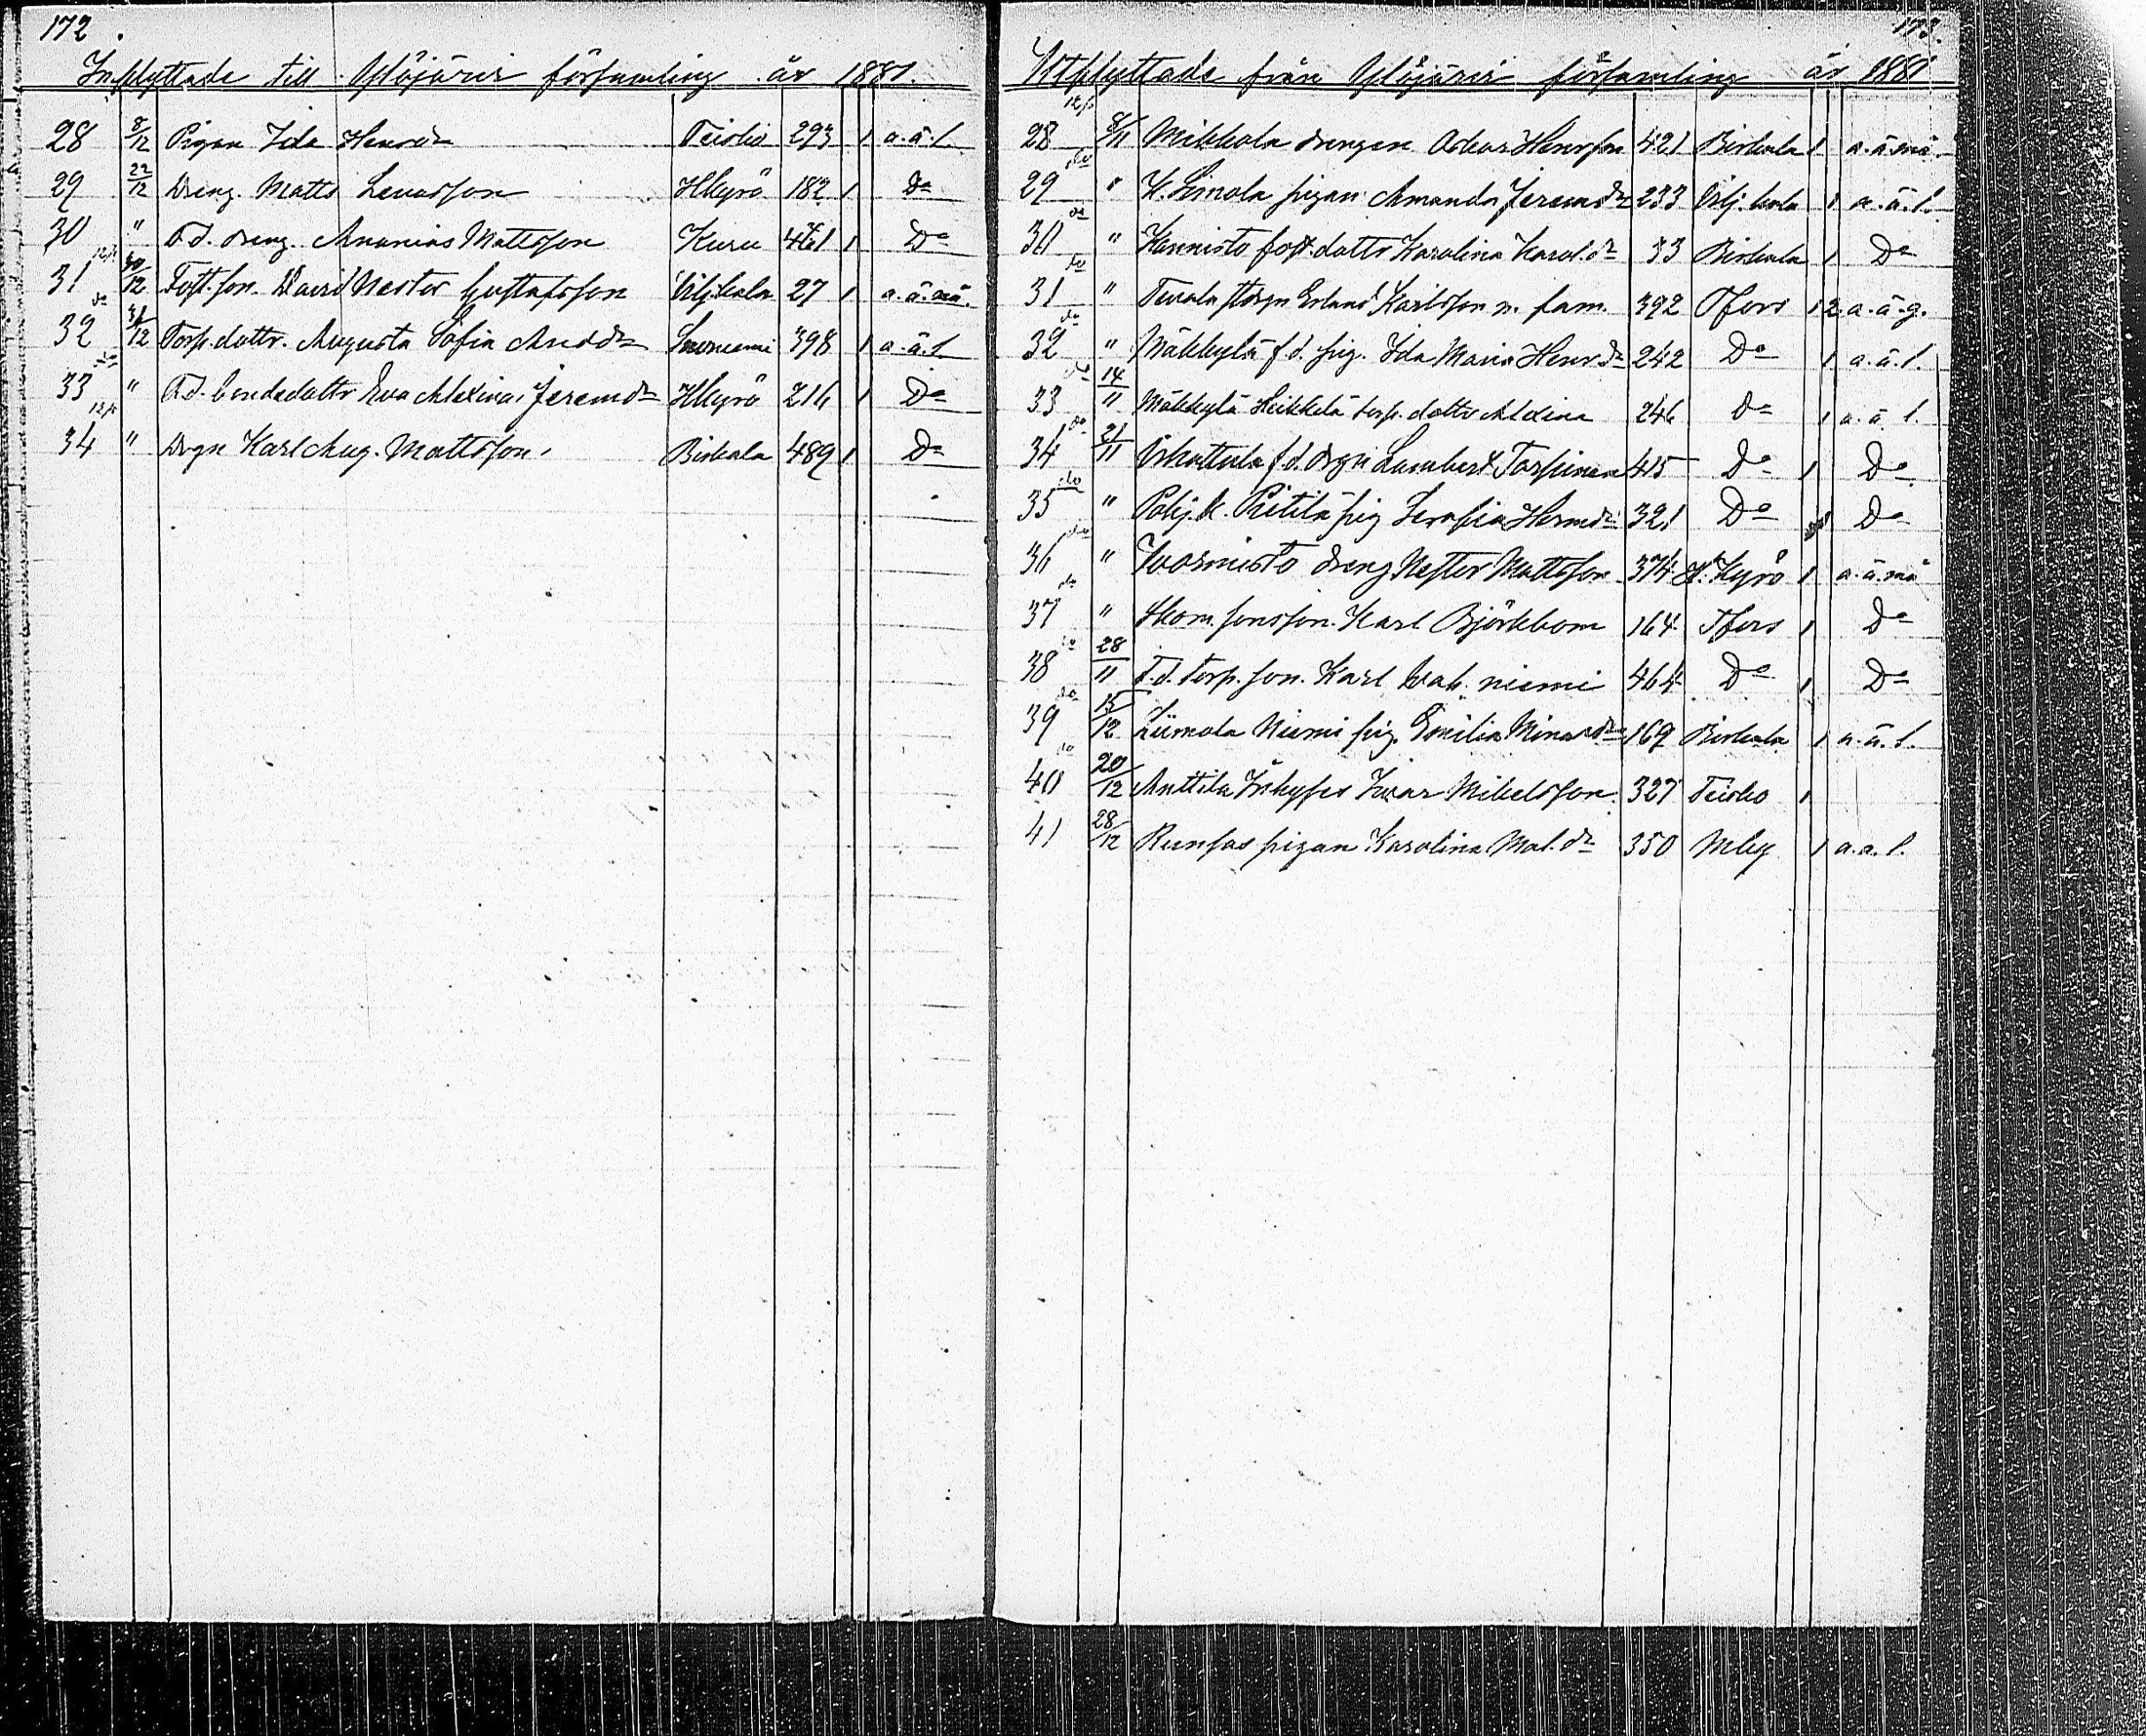 172.
Inflyttade till Ylöjärvi församling år 1881.
28 8/12 Pigan Ida Henrdr Teisko 293 1 a.ä.l.
29 22/12 Dreng. Matts Hkyrö 182 1 Do
30 " F.d. dreng. Ananias Mattsson Kuru 461 1 Do
31 30/12 Fost.son. David Nestor Gustafsson Viljkala 27 1 a.ä.nä.
32 do 31/12 Torp.dottr. Augusta Sofia Anddr Suoniemi 398 1 a.ä.l.
33 do " F.d. bondedottr Eva Alexina Jeremdr Hkyrö 216 1 Do
34 " Drgn Karl Aug. Mattsson Birkala 489 1 Do
173.
Utflyttade från Ylöjärvi församling år 1881
28 8/11 Mikkola drengen Oskar Henrsson 421 Birkala 1 a.ä.nä.
29 do " K. Simola pigan Amanda Jeremdr 233 Vilj.kala 1 a.ä.l.
30 do " Hannisto fost.dottr Karolina Karol.dr 33 Birkala 1 Do
31 do " Erland Karlsson m. fam. 392 Tfors 1 2 a.ä.g.
32 do " Mäkkylä f.d. pig. Ida Maria Henrdr 242 Do 1 a.ä.l.
33 do 14/11 Mäkkylä Heikkilä torp.dottr Aldina 246 Do 1 a.ä.l.
34 do 21/11 f.d. drgn Lambert 415 Do 1 Do
35 do " Pohj.k. Pietilä pig Serafia Hermdr 321 Do 1 Do
36 do " Vuormisto dreng Nestor Mattsson 374 H.Kyrö 1 a.ä.nä
37 do " Skom. sonsson Karl Björkbom 164 Tfors 1 Do
38 do 28/11 F.d. torp.son. Karl niemi 464 Do 1 Do
39 do 15/12 Liimola Niemi pig. Emilia 169 Birkala 1 a.ä.l.
40 do 20/12 Anttila Inhyses Ivar Mikelsson 327 Teisko 1
41 28/12 Runsas pigan Karolina Mat.dr 350 Mky 1 a.a.l.